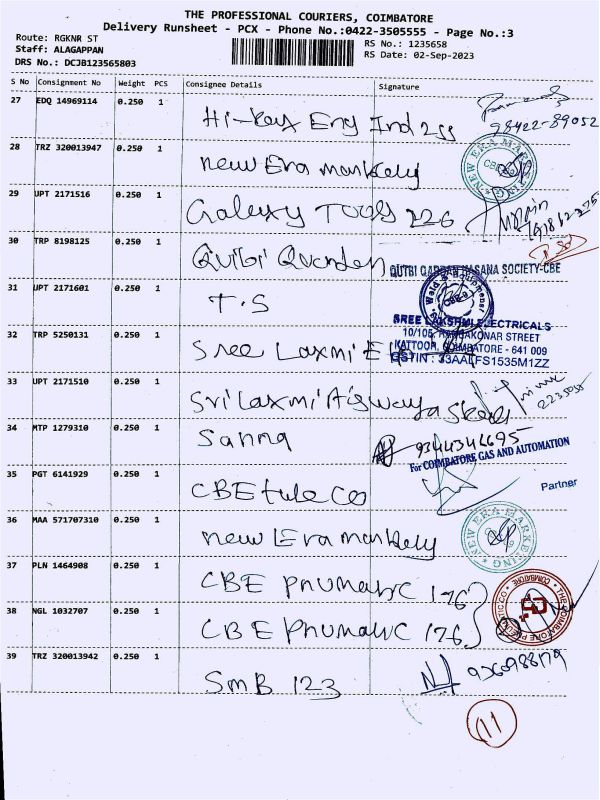 THE PROFESSIONAL COURIERS, COIMBATORE
Delivery Runsheet - PCX - Phone No.:0422-3505555 - Page No.:3
Route: RGKNR ST
Staff: ALAGAPPAN
DRS No.: DCJB123565803
RS No.: 1235658
RS Date: 02-Sep-2023
S No Consignment No Weight PCS Consignee Details Signature
27 EDQ 14969114 0.250 1
98422-89052
28 TRZ 320013947 0.250 1 New Era
NEW ERA MARKETING
CBE-9
29 UPT 2171516 0.250 1 Galexy Tools 226
30 TRP 8198125 0.250 1 Qutbi
QUTBI QARDAN HASANA SOCIETY-CBE
31 UPT 2171601 0.250 1 T.S
32 TRP 5250131 0.250 1 Sree Laxmi
SREE LAKSHMI ELECTRICALS
10/106, RANGAKONAR STREET
KATTOOR, COIMBATORE - 641 009
GSTIN : 33AALFS1535M1ZZ
33 UPT 2171510 0.250 1 Sri Laxmi
34 MTP 1279310 0.250 1 Sanna
9344344695
For COIMBATORE GAS AND AUTOMATION
Partner
35 PGT 6141929 0.250 1 CBE tube Co
36 MAA 571707310 0.250 1 New Era
NEW ERA MARKETING
37 PLN 1464908 0.250 1 CBE Pnumatic 176
38 NGL 1032707 0.250 1 CBE Pnumatic 176
39 TRZ 320013942 0.250 1 SMB 123
11